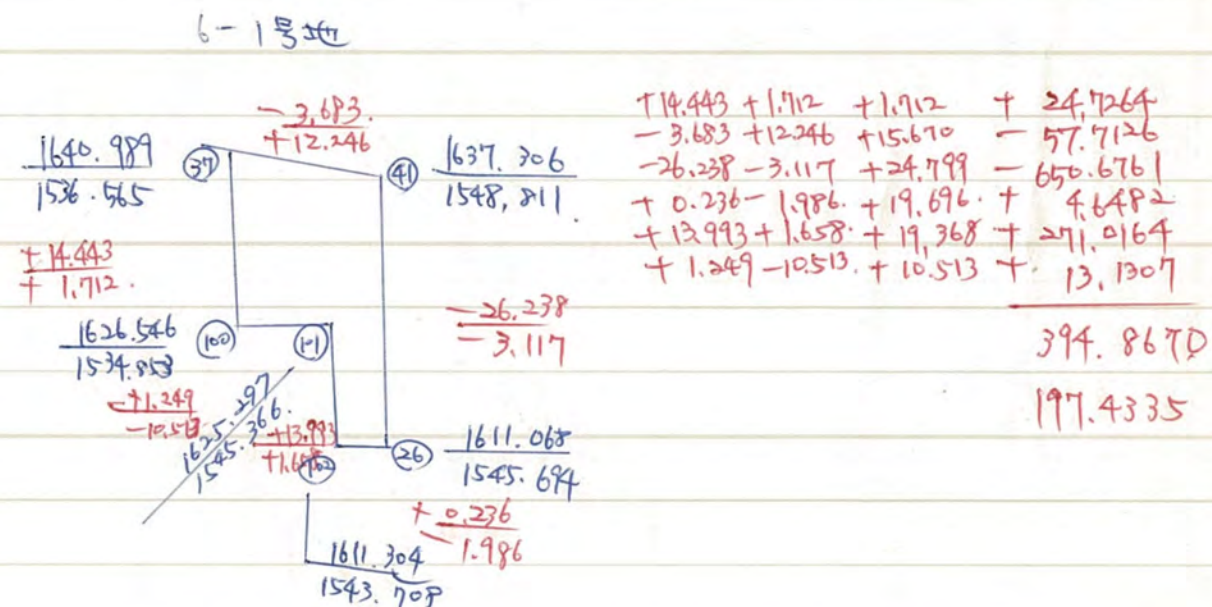 6-1号地
- 3.683.
+12.246
1640.989
1536.565
37
41
1637.306
1548,811.
+14.443
+ 1.712.
1626.546
1534.853
100
101
-26.238
-3.117
+1.249
-10.513
1625.297
1545.366.
+13.993
+1.658
102
26
1611.068
1545.694
+ 0.236
- 1.986
1611.304
1543.708
+14.443 +1.712 +1.712 + 24.7264
- 3.683 +12.246 +15.670 - 57.7126
-26.238 -3.117 +24.799 - 650.6761
+ 0.236 - 1.986. +19.696. + 4.6482
+ 13.993 +1.658. + 19,368 + 271.0164
+ 1.249 -10.513. + 10.513 + 13.1307
394.8670
197.4335